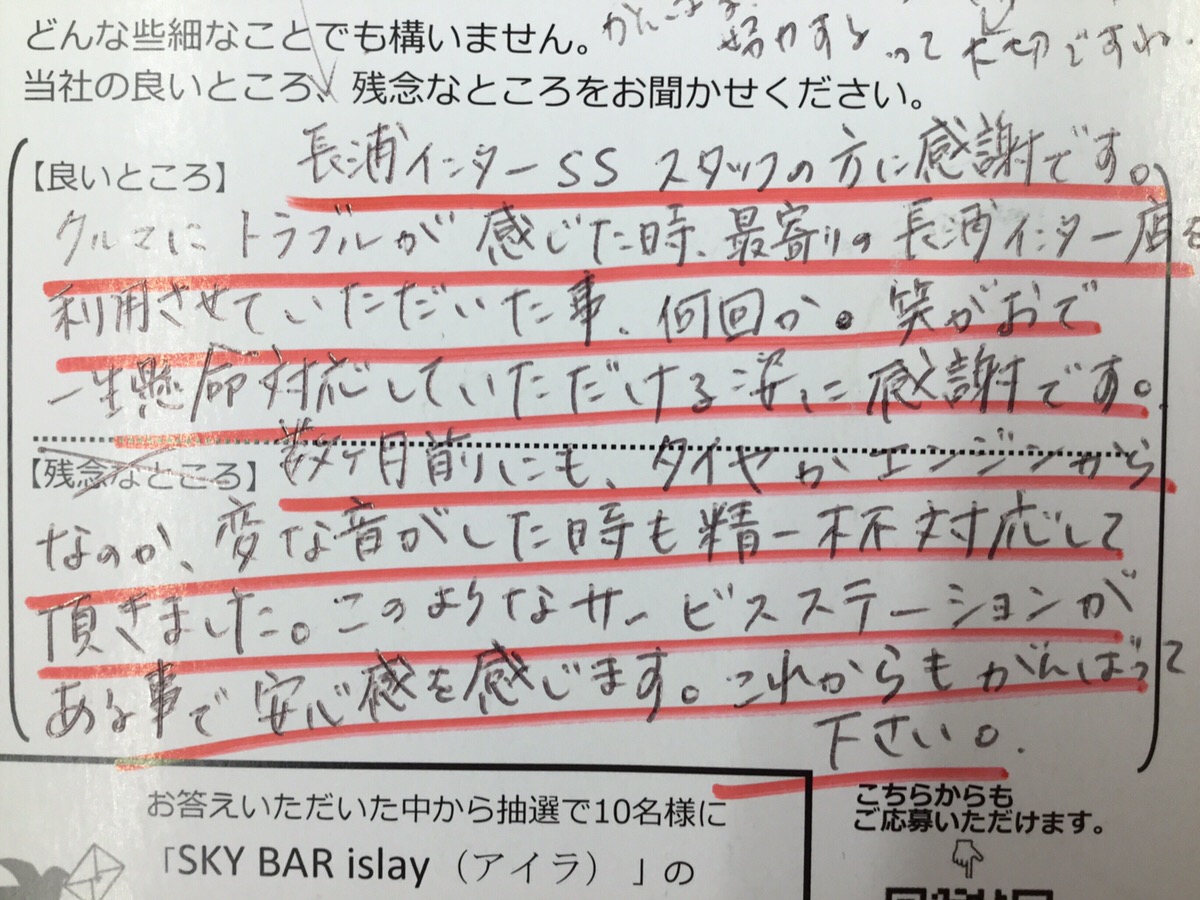 どんな些細なことでも構いません。
って大切ですね.
当社の良いところ、残念なところをお聞かせください。
【良いところ】 長浦インターSS スタッフの方に感謝です。
クルマにトラブルが感じた時、最寄りの長浦インター店を
利用させていただいた事、何回か。笑がおで
一生懸命対応していただける姿に感謝です。
【残念なところ】 数ヶ月前にも、タイヤかエンジンから
なのか、変な音がした時も精一杯対応して
頂きました。このようなサービスステーションが
ある事で安心感を感じます。これからもがんばって
下さい。
お答えいただいた中から抽選で10名様に
「SKY BAR islay（アイラ）」の
こちらからも
ご応募いただけます。